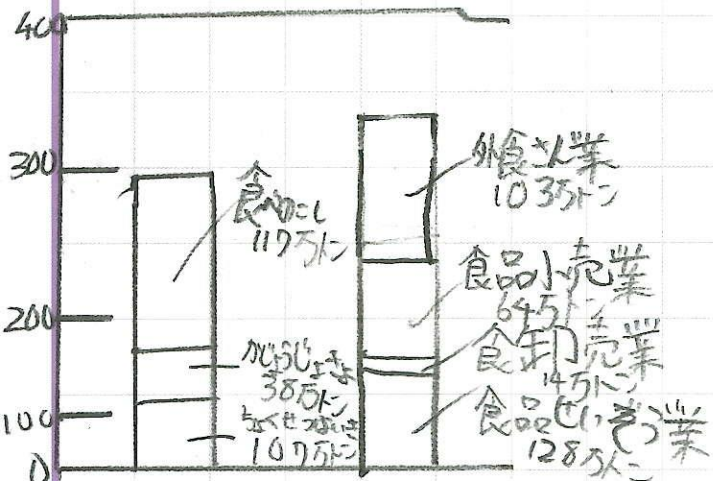 400
300
200
100
0
食べのこし
117万トン
かじょうじょきょ
38万トン
ちょくせつはいき
107万トン
外食さん業
103万トン
食品小売業
64万トン
食卸売業
14万トン
食品せいぞう業
128万トン